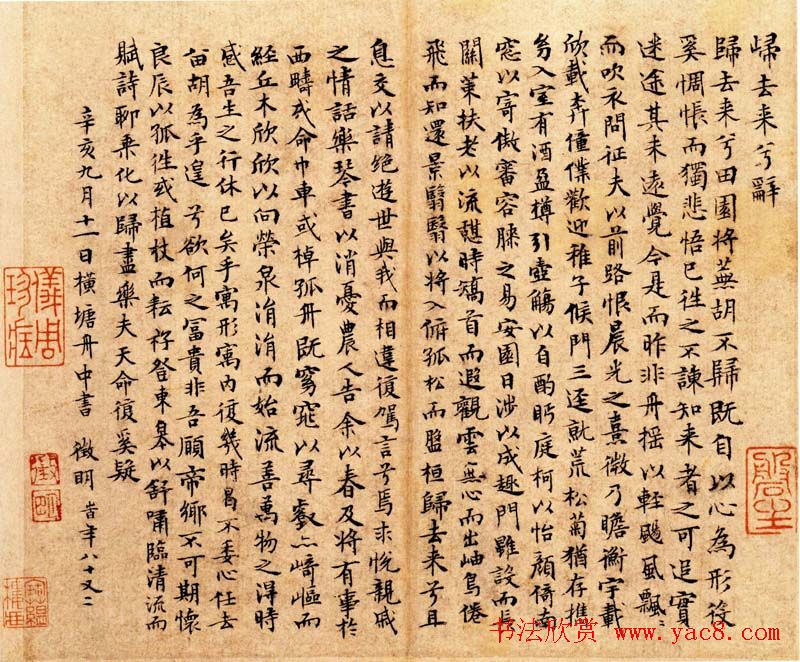 歸去来兮辭
歸去来兮田園将蕪胡不歸既自以心為形役
奚惆悵而獨悲悟已往之不諫知来者之可追實
迷途其未遠覺今是而昨非舟揺以軽颺風飄〻
而吹衣問征夫以前路恨晨光之熹微乃瞻衡宇載
欣載奔僮僕歡迎稚子候門三逕就荒松菊猶存携
幼入室有酒盈樽引壺觴以自酌眄庭柯以怡顔倚南
窓以寄傲審容膝之易安園日渉以成趣門雖設而長
關策扶老以流憩時矯首而遐觀雲無心而出岫鳥倦
飛而知還景翳翳以将入俯孤松而盤桓歸去来兮且
息交以請絶遊世與我而相違復駕言兮焉求悦親戚
之情話樂琴書以消憂農人告余以春及将有事於
西疇或命巾車或棹孤舟既窈窕以尋壑亦崎嶇而
經丘木欣欣以向榮泉涓涓而始流善萬物之得時
感吾生之行休已矣乎寓形寓内復幾時曷不委心任去
留胡為乎遑兮欲何之富貴非吾願帝鄉不可期懷
良辰以孤往或植杖而耘耔登東皋以舒嘯臨清流而
賦詩聊乗化以歸盡樂夫天命復奚疑
辛亥九月十一日橫塘舟中書 徵明 時年八十又二
儀周珍藏
徵明
书法欣赏 www.yac8.com